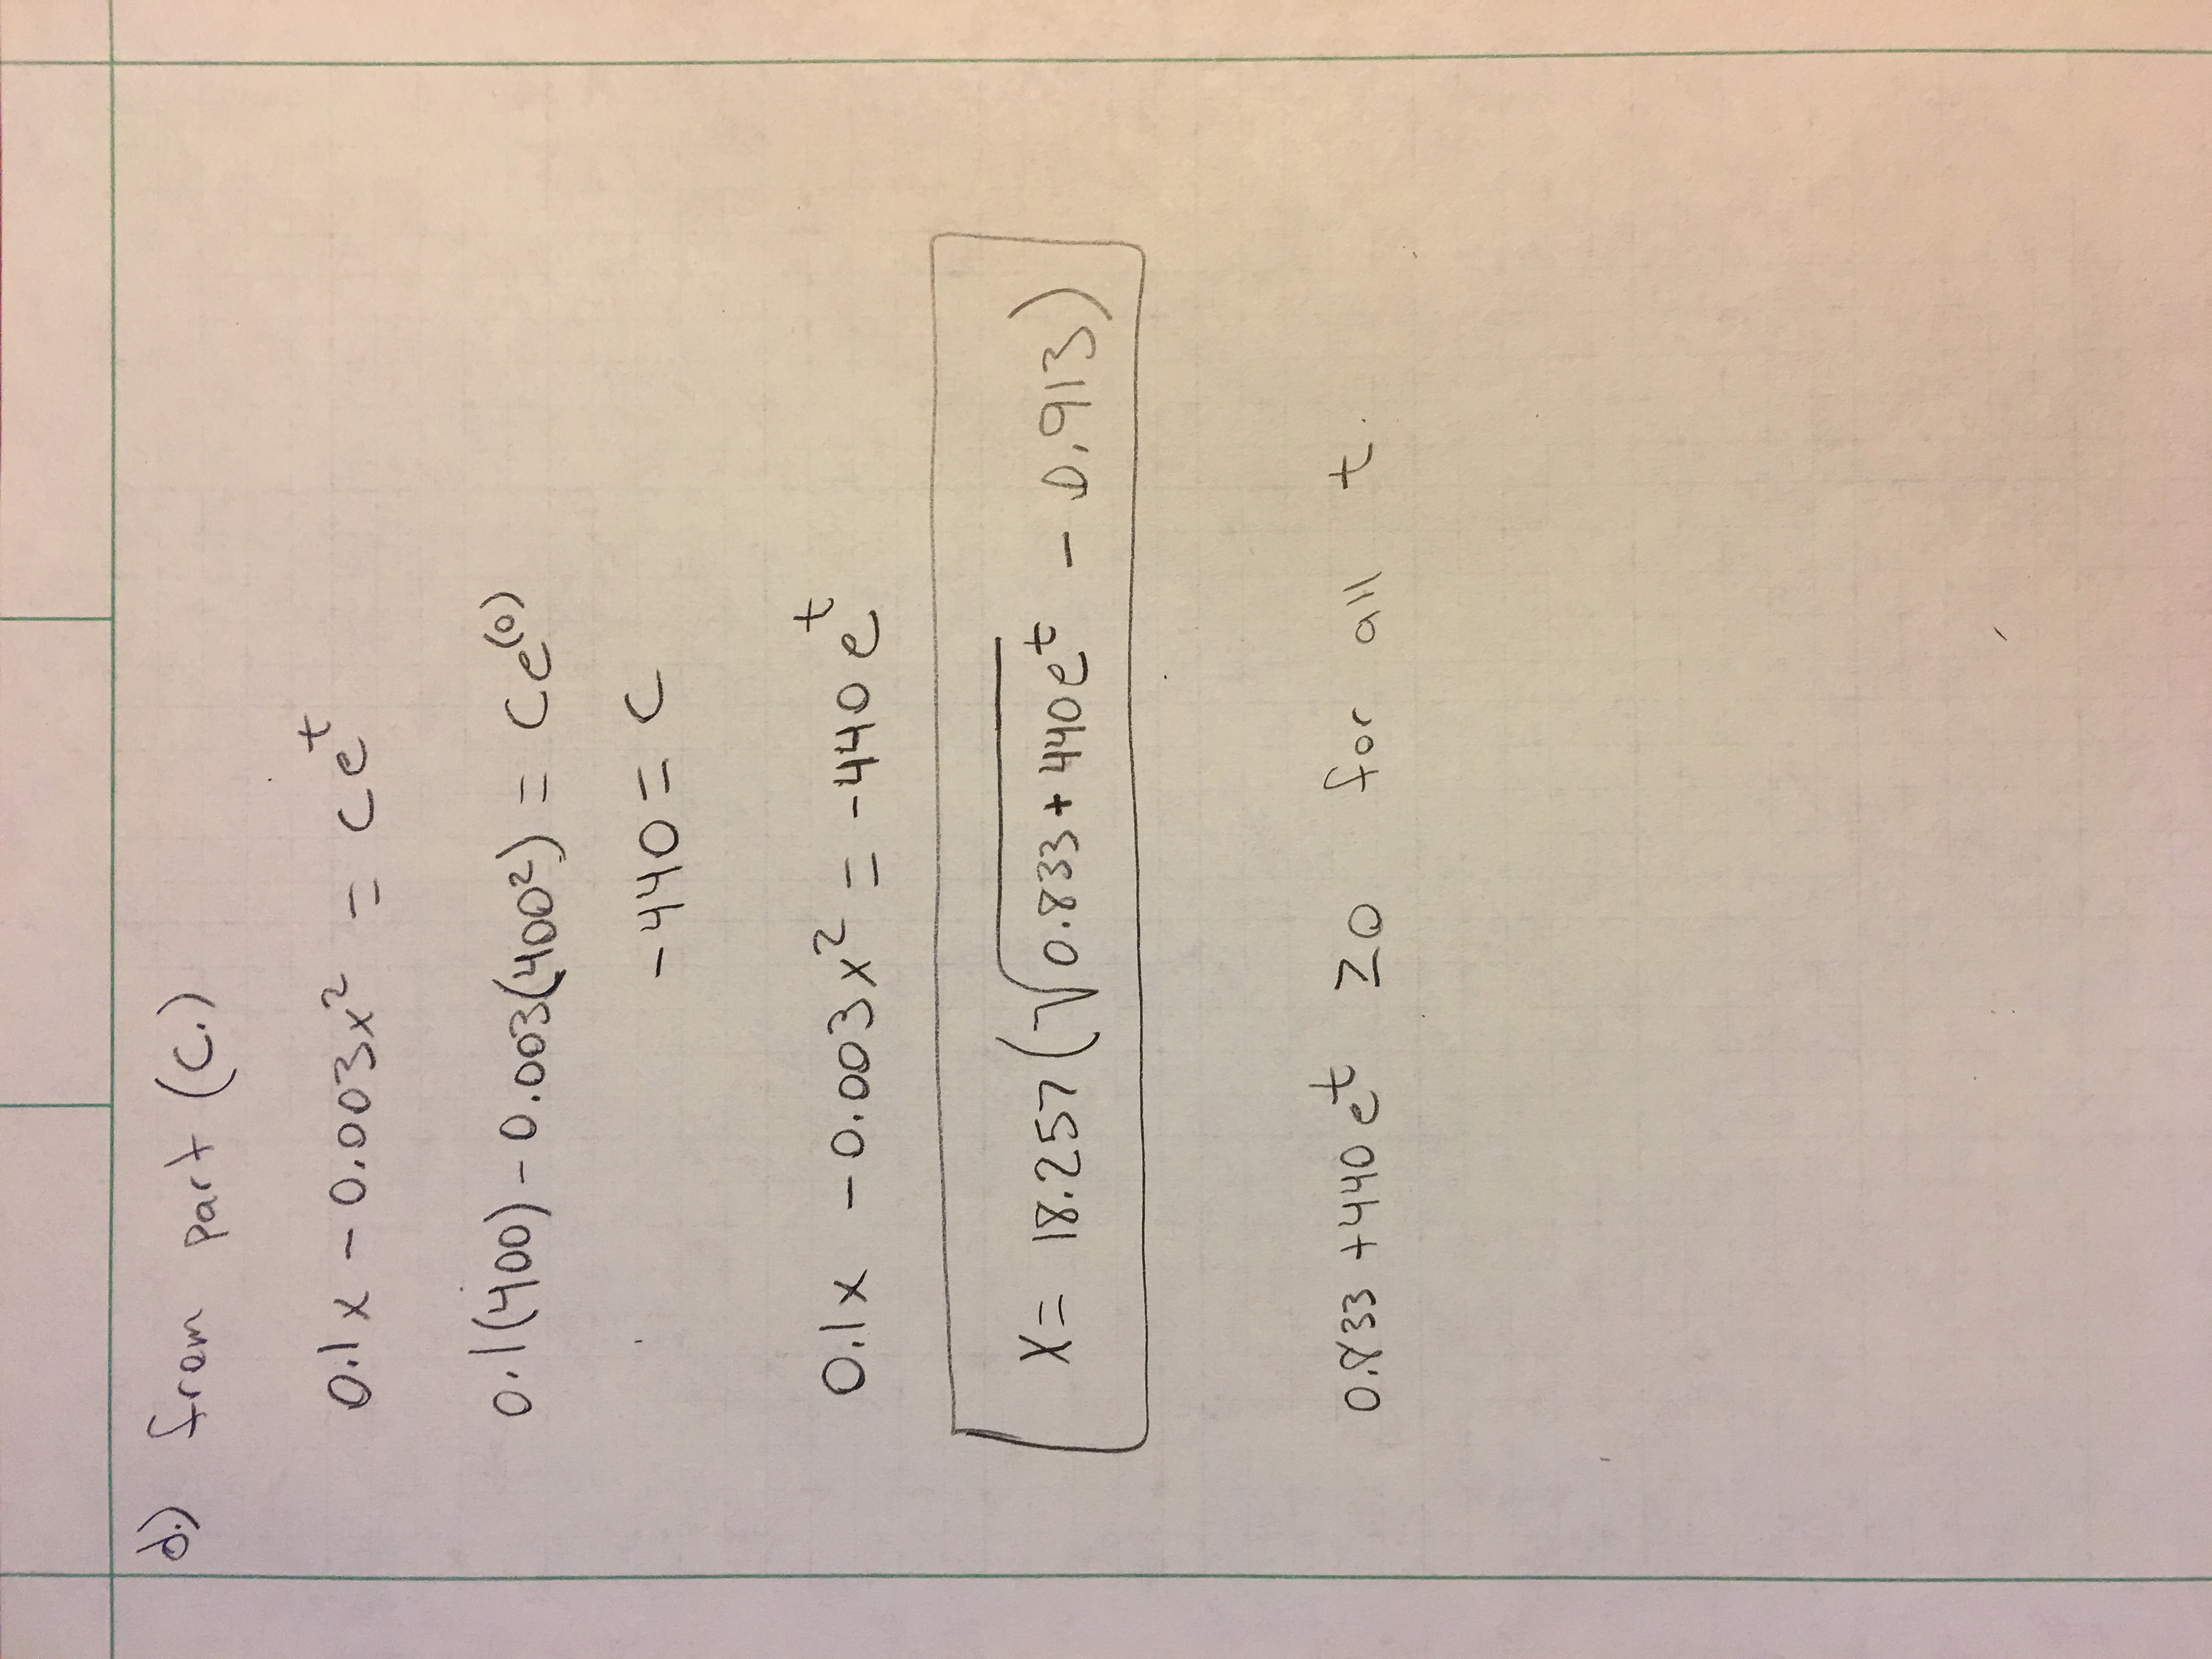 d.) from part (C.)
0.1x - 0.003x² = ce^t
0.1(400) - 0.003(400²) = Ce^(0)
-440 = C
0.1x - 0.003x² = -440e^t
X = 18.257(√0.833 + 440e^t - 0.913)
0.833 + 440e^t ≥0 for all t.